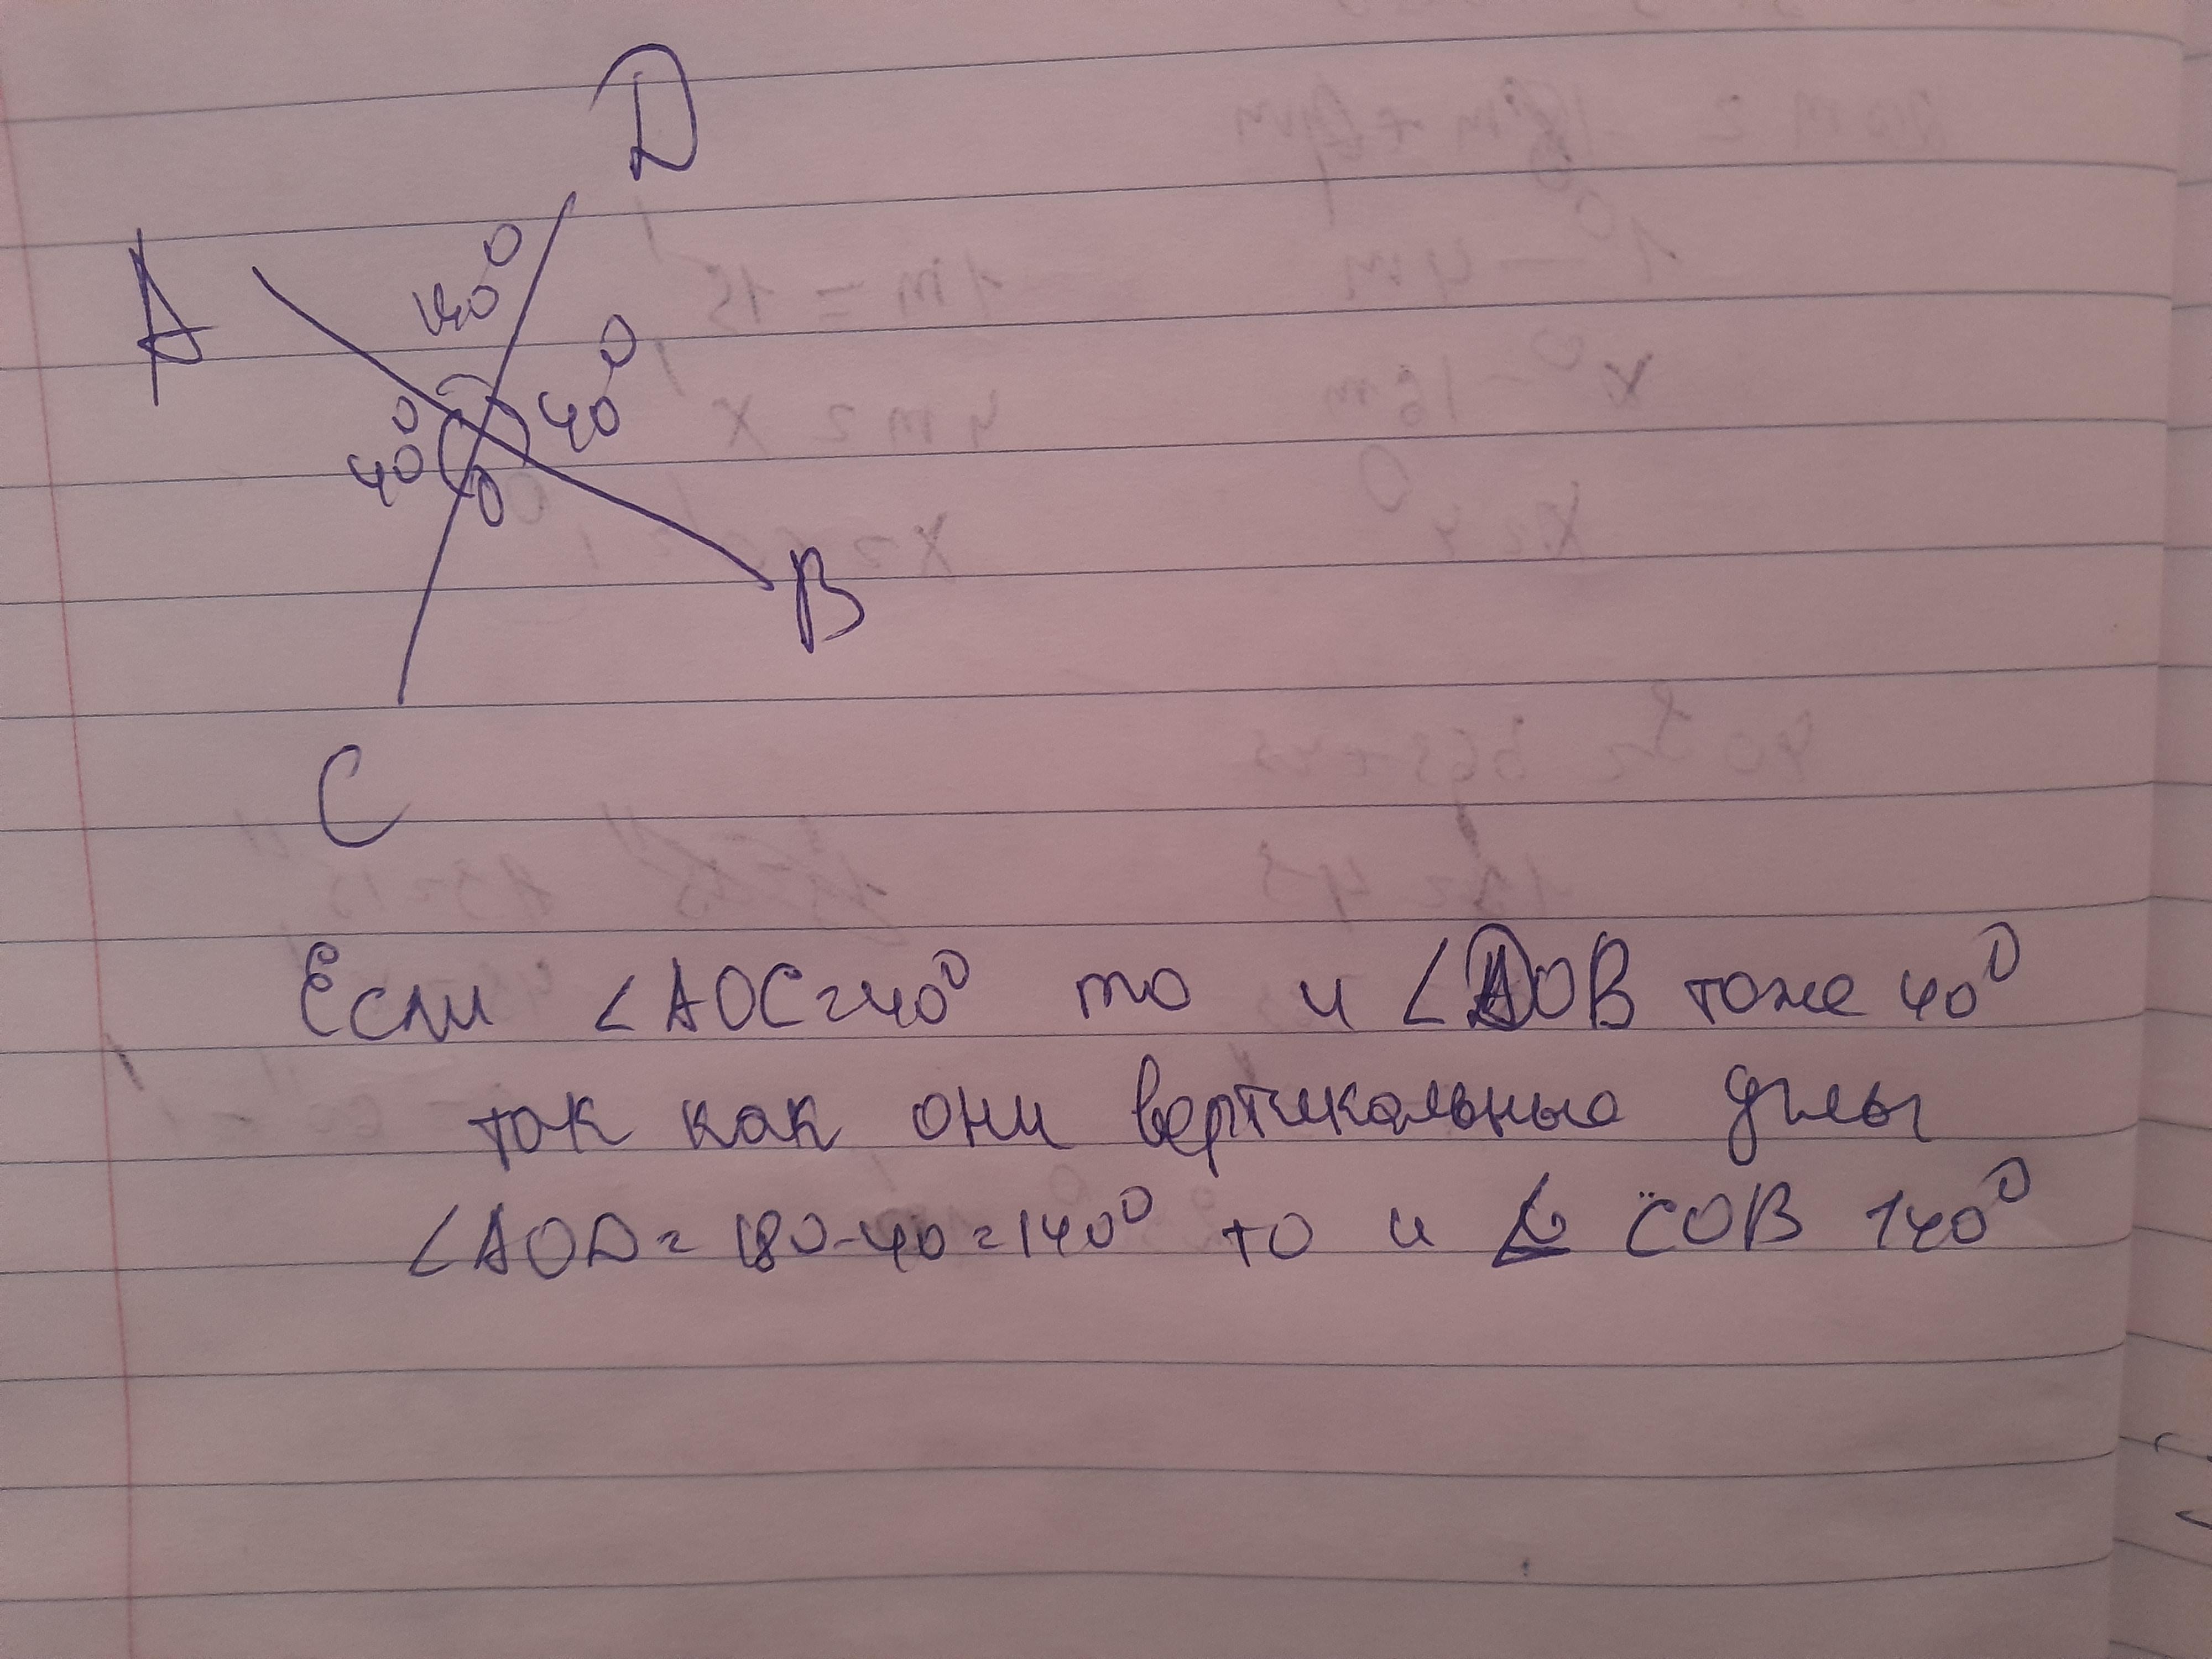 D
A
140°
40°
40°
O
B
C
Если ∠AOC=40° то и ∠DOB тоже 40°
так как они вертикальные углы
∠AOD=180-40=140° то и ∠ COB 140°